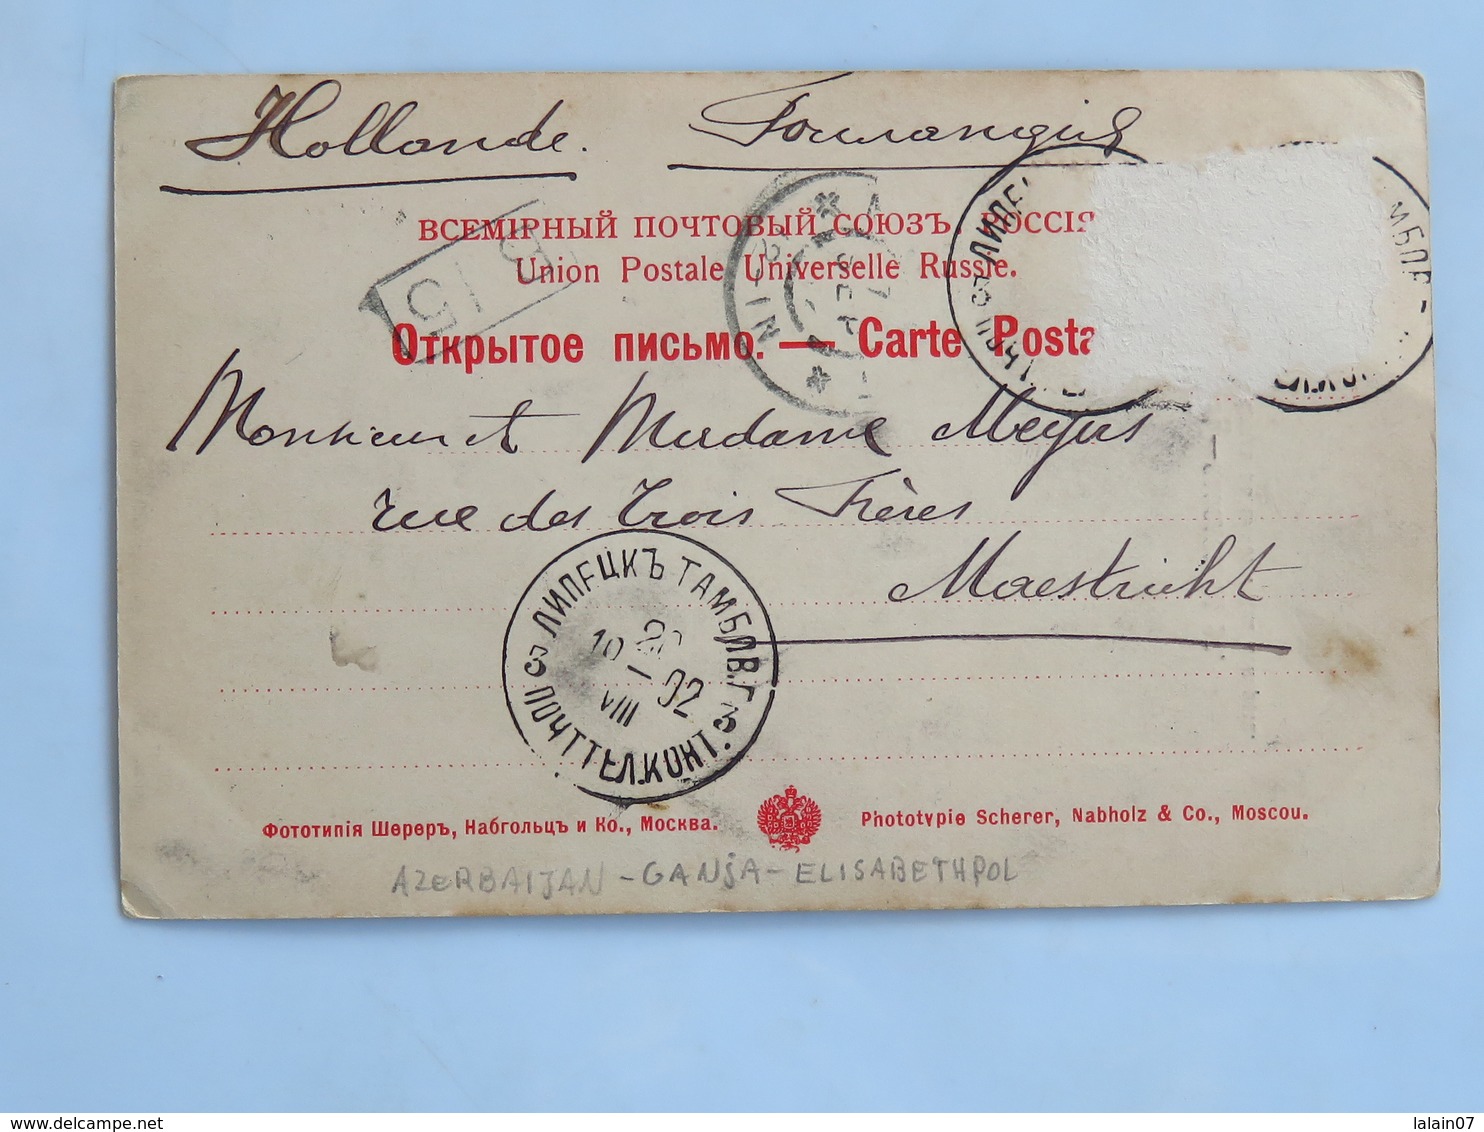 Hollande. Голландия
ВСЕМІРНЫЙ ПОЧТОВЫЙ СОЮЗЪ. РОССІЯ
Union Postale Universelle Russie.
Открытое письмо. — Carte Posta
Monsieur et Madame Meyers
rue des Trois Frères
Maestricht
ЛИПЕЦКЪ ТАМБОВ.Г.
10 VIII 02
ПОЧТ ТЕЛ.КОНТ.
Фототипія Шереръ, Набгольцъ и Ко., Москва. Phototypie Scherer, Nabholz & Co., Moscou.
AZERBAIJAN - GANJA - ELISABETHPOL
lalain07